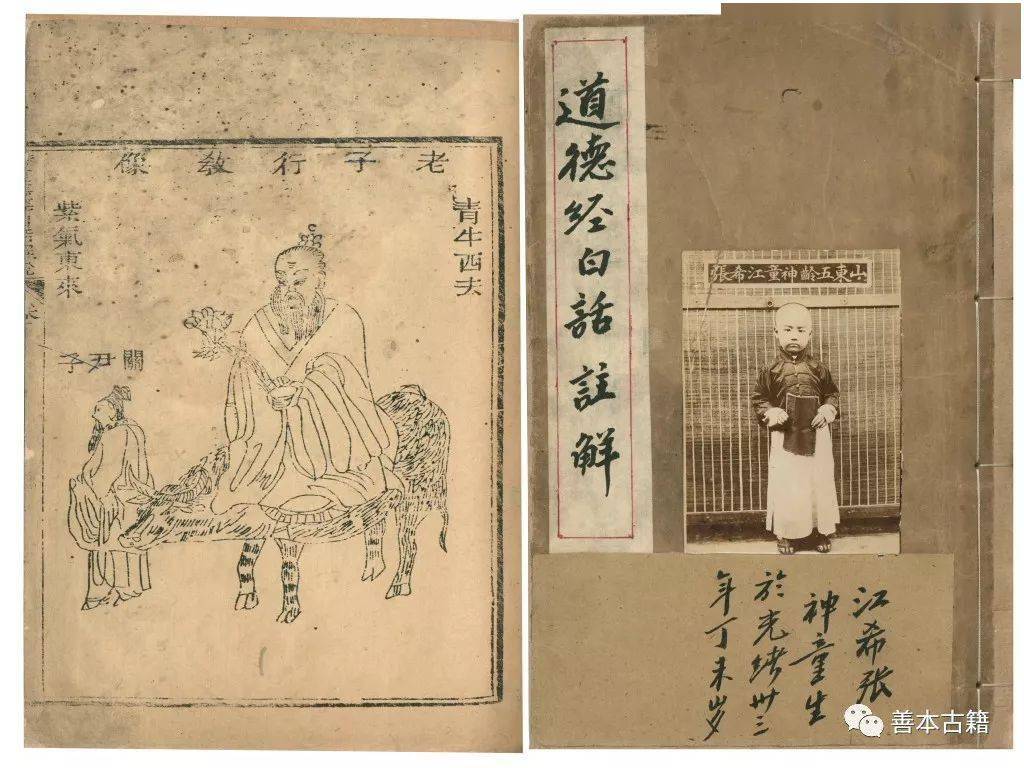 老子行教像
青牛西去
紫氣東來
關尹子
道德经白話註解
山東五齡神童江希張
江希张
神童生
於光緒卅三
年丁未岁
善本古籍